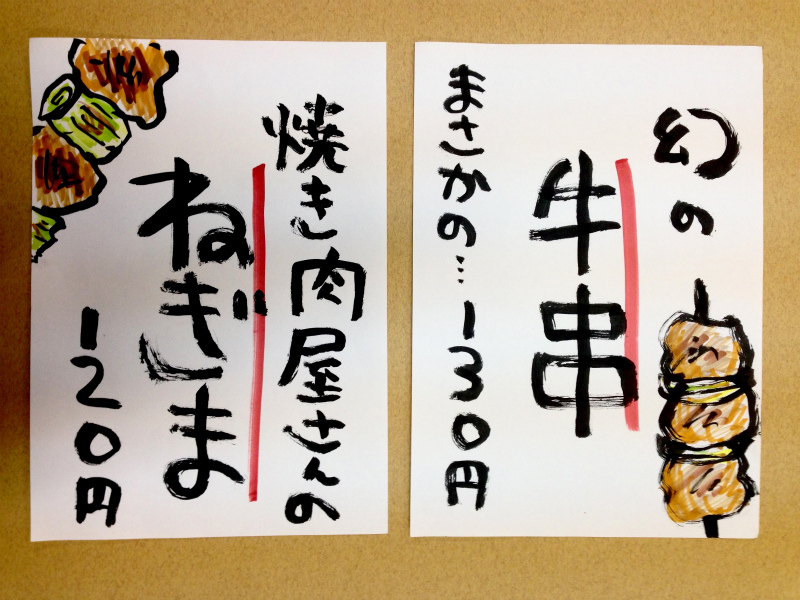 幻の
牛串
まさかの…130円
焼き肉屋さんの
ねぎま
120円